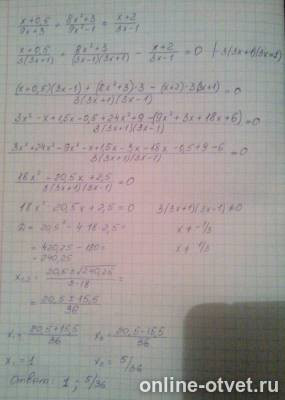 x+0,5/9x+3 + 8x²+3/9x²-1 = x+2/3x-1
x+0,5/3(3x+1) + 8x²+3/(3x-1)(3x+1) - x+2/3x-1 = 0
(x+0,5)(3x-1) + (8x²+3)·3 - (x+2)·3(3x+1)/3(3x+1)(3x-1) = 0
3x²-x+1,5x-0,5+24x²+9-(9x²+3x+18x+6)/3(3x+1)(3x-1) = 0
3x²+24x²-9x²-x+1,5x-3x-18x-0,5+9-6/3(3x+1)(3x-1) = 0
18x²-20,5x+2,5/3(3x+1)(3x-1) = 0
18x²-20,5x+2,5=0 3(3x+1)(3x-1)≠0
D = 20,5²-4·18·2,5= x≠-1/3
= 420,25-180= x≠1/3
= 240,25
x₁,₂ = 20,5±√240,25/2·18 =
= 20,5±15,5/36
x₁ = 20,5+15,5/36 x₂ = 20,5-15,5/36
x₁ = 1 x₂ = 5/36
Ответ: 1; 5/36
online-otvet.ru